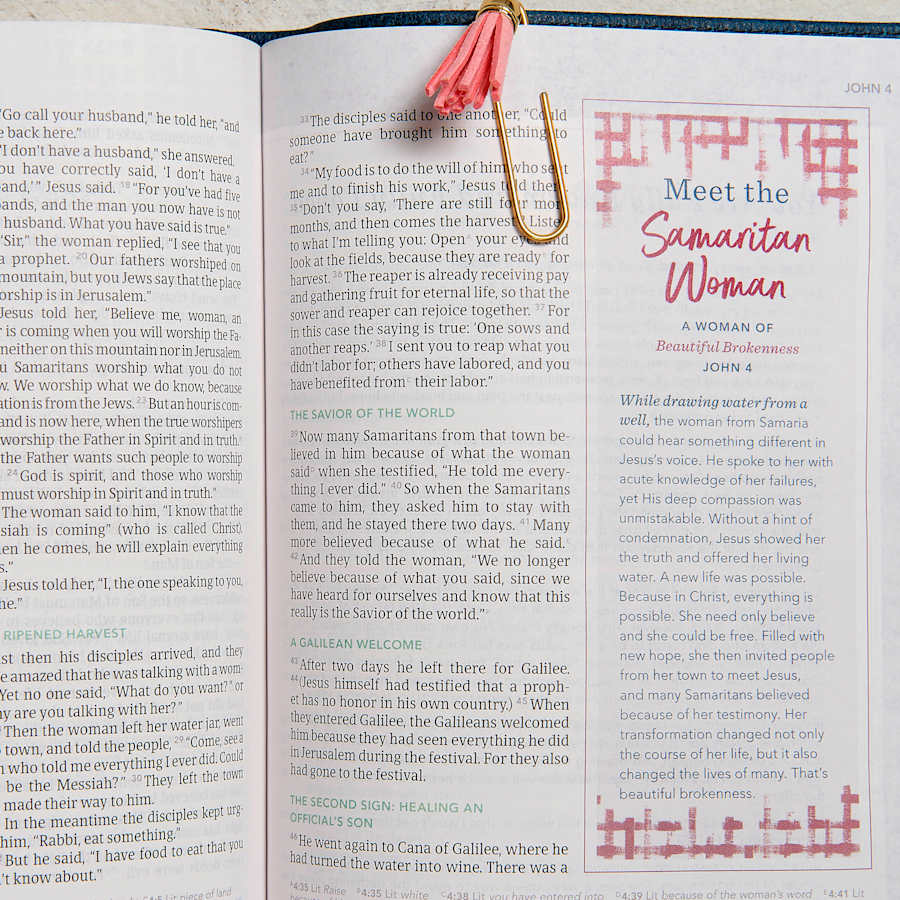 "Go call your husband," he told her, "and
back here."
"I don't have a husband," she answered.
have correctly said, 'I don't have a
Jesus said. 18 "For you've had five
and the man you now have is not
husband. What you have said is true."
"Sir," the woman replied, "I see that you
a prophet. 20 Our fathers worshiped on
mountain, but you Jews say that the place
is in Jerusalem."
Jesus told her, "Believe me, woman, an
is coming when you will worship the Fa-
neither on this mountain nor in Jerusalem.
Samaritans worship what you do not
We worship what we do know, because
is from the Jews. 23 But an hour is com-
and is now here, when the true worshipers
worship the Father in Spirit and in truth.
the Father wants such people to worship
24 God is spirit, and those who worship
must worship in Spirit and in truth."
The woman said to him, "I know that the
is coming" (who is called Christ).
he comes, he will explain everything
Jesus told her, "I, the one speaking to you,
RIPENED HARVEST
then his disciples arrived, and they
amazed that he was talking with a wom-
Yet no one said, "What do you want?" or
are you talking with her?"
Then the woman left her water jar, went
town, and told the people, 29 "Come, see a
who told me everything I ever did. Could
be the Messiah?" 30 They left the town
made their way to him.
In the meantime the disciples kept urg-
him, "Rabbi, eat something."
But he said, "I have food to eat that you
know about."
4:5 Lit piece of land
33 The disciples said to one another, "Could
someone have brought him something to
eat?"
34 "My food is to do the will of him who sent
me and to finish his work," Jesus told them.
35 "Don't you say, 'There are still four more
months, and then comes the harvest'? Listen
to what I'm telling you: Open your eyes and
look at the fields, because they are ready for
harvest. 36 The reaper is already receiving pay
and gathering fruit for eternal life, so that the
sower and reaper can rejoice together. 37 For
in this case the saying is true: 'One sows and
another reaps.' 38 I sent you to reap what you
didn't labor for; others have labored, and you
have benefited from their labor."
THE SAVIOR OF THE WORLD
39 Now many Samaritans from that town be-
lieved in him because of what the woman
said when she testified, "He told me every-
thing I ever did." 40 So when the Samaritans
came to him, they asked him to stay with
them, and he stayed there two days. 41 Many
more believed because of what he said.
42 And they told the woman, "We no longer
believe because of what you said, since we
have heard for ourselves and know that this
really is the Savior of the world."
A GALILEAN WELCOME
43 After two days he left there for Galilee.
44 (Jesus himself had testified that a proph-
et has no honor in his own country.) 45 When
they entered Galilee, the Galileans welcomed
him because they had seen everything he did
in Jerusalem during the festival. For they also
had gone to the festival.
THE SECOND SIGN: HEALING AN
OFFICIAL'S SON
46 He went again to Cana of Galilee, where he
had turned the water into wine. There was a
4:35 Lit Raise 4:35 Lit white 4:38 Lit you have entered into 4:39 Lit because of the woman's word 4:41 Lit
JOHN 4
Meet the
Samaritan
Woman
A WOMAN OF
Beautiful Brokenness
JOHN 4
While drawing water from a
well, the woman from Samaria
could hear something different in
Jesus's voice. He spoke to her with
acute knowledge of her failures,
yet His deep compassion was
unmistakable. Without a hint of
condemnation, Jesus showed her
the truth and offered her living
water. A new life was possible.
Because in Christ, everything is
possible. She need only believe
and she could be free. Filled with
new hope, she then invited people
from her town to meet Jesus,
and many Samaritans believed
because of her testimony. Her
transformation changed not only
the course of her life, but it also
changed the lives of many. That's
beautiful brokenness.